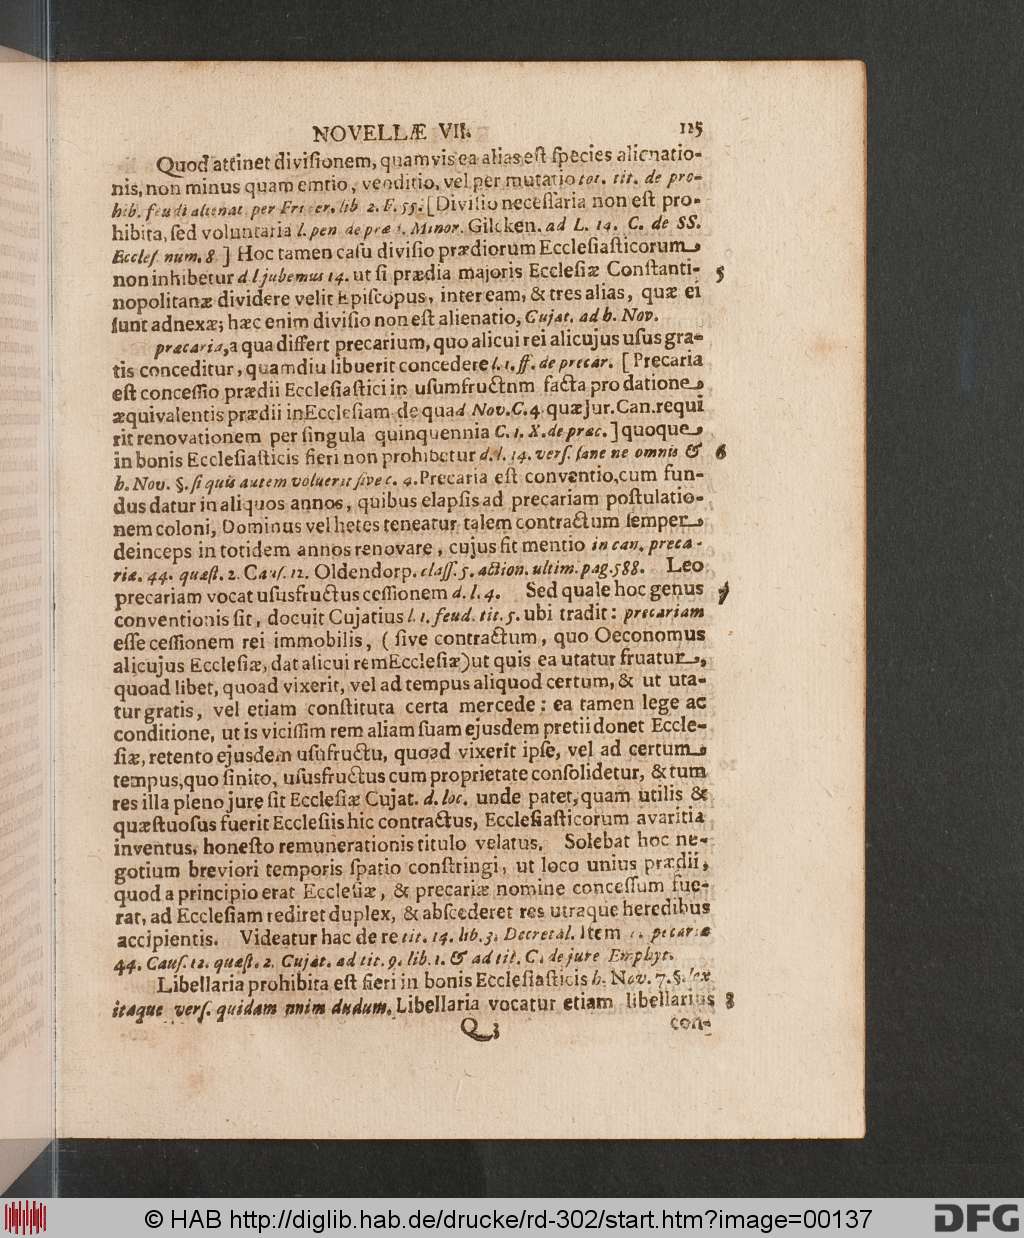 NOVELLÆ VII. 125
Quod attinet diviſionem, quamvis ea alias eſt ſpecies alienatio-
nis, non minus quam emtio, venditio, vel per mutatio tot. tit. de pro-
hib. feudi alienat. per Frider. lib. 2. F. 55. [Diviſio neceſſaria non eſt pro-
hibita, ſed voluntaria l. pen de præd. Minor. Gilcken. ad L. 14. C. de SS.
Eccleſ. num. 8. ] Hoc tamen caſu diviſio prædiorum Eccleſiaſticorum
non inhibetur d. l jubemus 14. ut ſi prædia majoris Eccleſiæ Conſtanti- 5
nopolitanæ dividere velit Epiſcopus, inter eam, & tres alias, quæ ei
ſunt adnexæ; hæc enim diviſio non eſt alienatio, Cujat. ad h. Nov.
præcaria, a qua differt precarium, quo alicui rei alicujus uſus gra-
tis conceditur, quamdiu libuerit concedere l. 1. ff. de precar. [ Precaria
eſt conceſſio prædii Eccleſiaſtici in uſumfructnm facta pro datione
æquivalentis prædii in Eccleſiam de qua d Nov. C. 4. quæ Jur. Can. requi
rit renovationem per ſingula quinquennia C. 1. X. de prec. ] quoque
in bonis Eccleſiaſticis fieri non prohibetur d. l. 14. verſ. ſane ne omnis & 6
h. Nov. §. ſi quis autem voluerit ſive c. 4. Precaria eſt conventio, cum fun-
dus datur in aliquos annos, quibus elapſis ad precariam poſtulatio-
nem coloni, Dominus vel heres teneatur talem contractum ſemper
deinceps in totidem annos renovare, cujus fit mentio in can. preca-
riæ. 44. quæſt. 2. Cauſ. 12. Oldendorp. claſſ. 5. action. ultim. pag. 588. Leo
precariam vocat uſusfructus ceſſionem d. l. 4. Sed quale hoc genus 7
conventionis ſit, docuit Cujatius l. 1. feud. tit. 5. ubi tradit: precariam
eſſe ceſſionem rei immobilis, ( ſive contractum, quo Oeconomus
alicujus Eccleſiæ, dat alicui rem Eccleſiæ) ut quis ea utatur fruatur,
quoad libet, quoad vixerit, vel ad tempus aliquod certum, & ut uta-
tur gratis, vel etiam conſtituta certa mercede: ea tamen lege ac
conditione, ut is viciſſim rem aliam ſuam ejusdem pretii donet Eccle-
ſiæ, retento ejusdem uſufructu, quoad vixerit ipſe, vel ad certum
tempus, quo finito, uſusfructus cum proprietate conſolidetur, & tum
res illa pleno jure ſit Eccleſiæ Cujat. d. loc. unde patet, quam utilis &
quæſtuoſus fuerit Eccleſiis hic contractus, Eccleſiaſticorum avaritia
inventus, honeſto remunerationis titulo velatus. Solebat hoc ne-
gotium breviori temporis ſpatio conſtringi, ut loco unius prædii,
quod a principio erat Eccleſiæ, & precariæ nomine conceſſum fue-
rat, ad Eccleſiam rediret duplex, & abſcederet res utraque heredibus
accipientis. Videatur hac de re tit. 14. lib. 3. Decretal. Item
44. Cauſ. 12. quæſt. 2. Cujat. ad tit. 9. lib. 1. & ad tit. C. de jure Emphyt.
Libellaria prohibita eſt fieri in bonis Eccleſiaſticis h. Nov. 7. §. lex
itaque verſ. quidam nnim dudum. Libellaria vocatur etiam libellarius 8
Q 3 con-
© HAB http://diglib.hab.de/drucke/rd-302/start.htm?image=00137
DFG